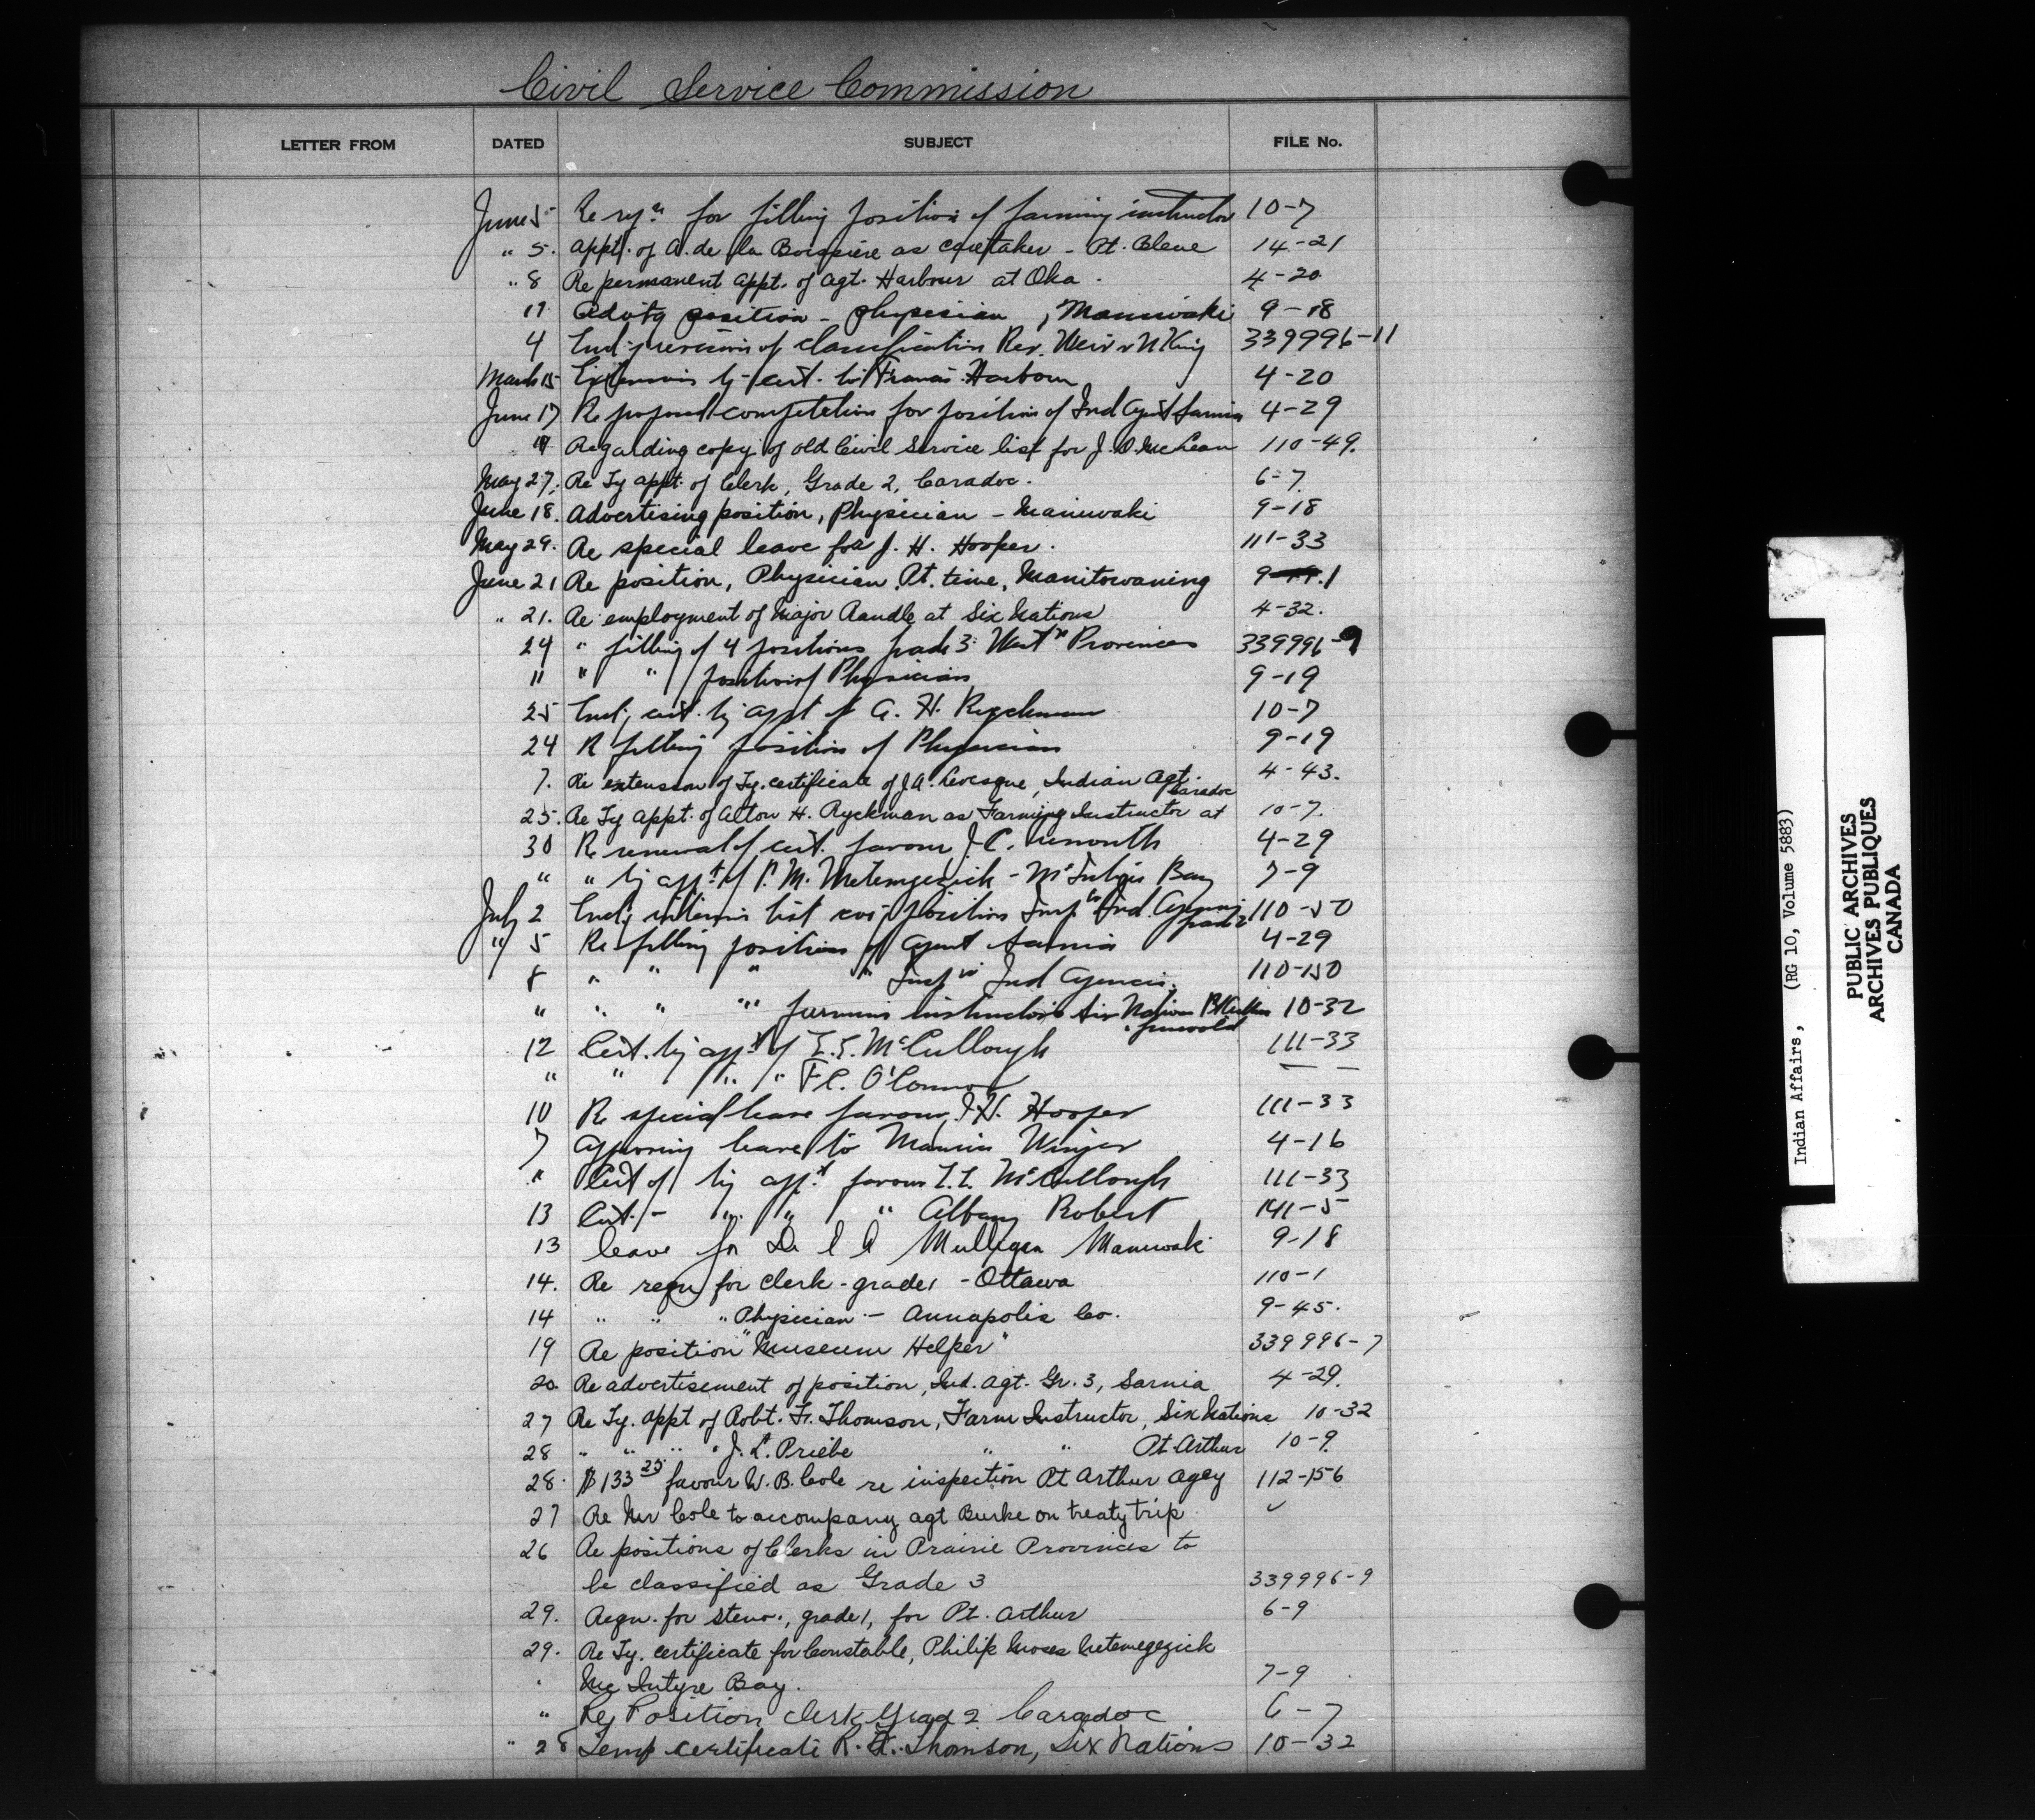 Civil Service Commission
LETTER FROM DATED SUBJECT FILE No.
June 5 Re for filling position of farming instructor 10-7
" 5. appt. of A. de la Boissiere as caretaker - Pt. Bleue 14-21
" 8 Re permanent appt. of agt. Harbour at Oka. 4-20
17 Advtg position - physician, Maniwaki 9-18
4 Encl'g revision of classification Rev. Weir 339996-11
March 15 Extension ty cert. Francis Harbour 4-20
June 17 Re proposed competition for position of Ind Agent Sarnia 4-29
Regarding copy of old Civil Service list for J. D. McLean 110-49.
May 27, Re Ty appt. of Clerk, Grade 2, Caradoc. 6-7
June 18. Advertising position, Physician - Maniwaki 9-18
May 29. Re special leave for J. H. Hooper. 111-33
June 21 Re position, Physician Pt. time, Manitowaning 9-1
" 21. Re employment of Major Randle at Six Nations 4-32.
24 " filling of 4 positions grade 3 West'n Provinces 339996-9
" " " position of Physician 9-19
25 Encl'g cert. ty appt of A. H. Ryckman 10-7
24 Re filling position of Physician 9-19
7. Re extension of Ty. certificate of J.A. Levesque, Indian Agt. 4-43.
25. Re Ty appt. of Alton H. Ryckman as Farming Instructor at Caradoc 10-7.
30 Re renewal of cert. favour J. C. 4-29
" " ty app't of P. M. Metemgezick - McIntyre Bay 7-9
July 2 Encl'g list position Insp Ind. Agencies grade 2 110-50
" 5 Re filling position of Agent Sarnia 4-29
8 " " " " Insp Ind Agencies. 110-150
" " " " farming instructors Six Nations 10-32
12 Cert. ty app't of E. E. McCullough 111-33
" " " " F C. O'Connor — —
10 Re special leave favour J.H. Hooper 111-33
7 Approving leave to Winger 4-16
" Cert of ty app't favour McCullough 111-33
13 Cert. - " " " Albany Robert 141-5
13 leave for Dr Mulligan Maniwaki 9-18
14. Re reqn for clerk - grade 1 - Ottawa 110-1
14 " " " Physician - Annapolis Co. 9-45.
19 Re position "Museum Helper" 339996-7
20. Re advertisement of position, Ind. Agt. Gr. 3, Sarnia 4-29.
27 Re Ty. appt of Robt. F. Thomson, Farm Instructor, Six Nations 10-32
28 " " " " J. L. Priebe " " Pt Arthur 10-9.
28. $133 25 favour W. B. Cole re inspection Pt Arthur Agcy 112-156
27 Re Mr Cole to accompany agt Burke on treaty trip ✓
26 Re positions of Clerks in Prairie Provinces to
be classified as Grade 3 339996-9
29. Reqn. for steno., grade 1, for Pt. Arthur 6-9
29. Re Ty. certificate for Constable, Philip Moses Metemegezick
" McIntyre Bay. 7-9
" Reg Position Clerk Grad 2 Caradoc 6-7
" 28 Temp certificate R. F. Thomson, Six Nations 10-32
Indian Affairs, (RG 10, Volume 5883)
PUBLIC ARCHIVES
ARCHIVES PUBLIQUES
CANADA